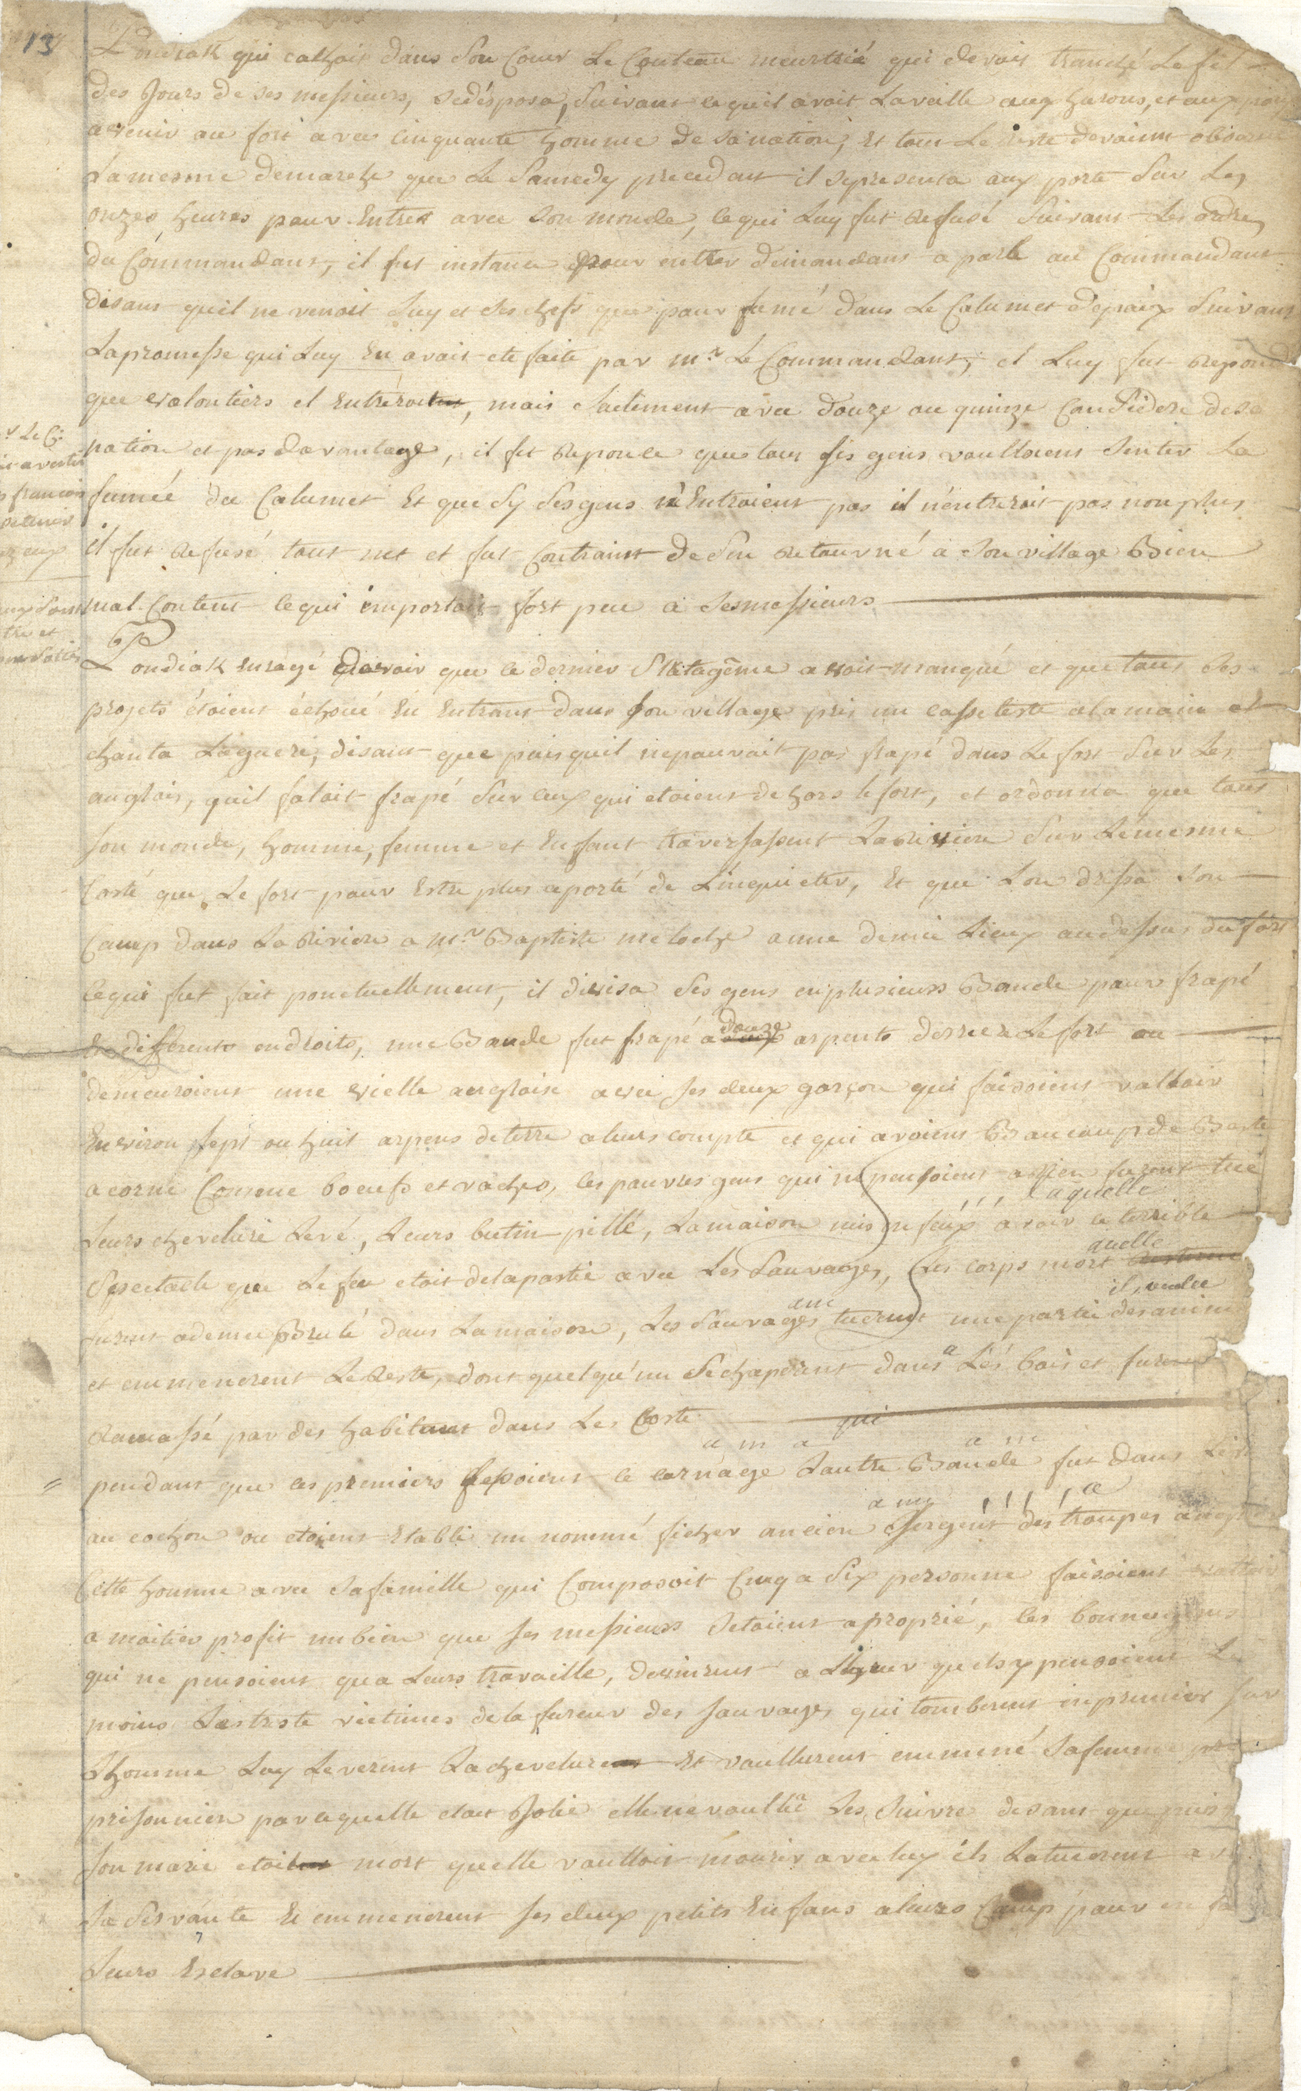 13
Pondiak qui cachoit dans son Coeur Le Couteau meurtrié qui devoit tranché Le fil
des Jours de ses messieurs, se disposa, suivant ce quil avoit La veille aux hurons, et aux
a venir au fort avec Cinquante homme de sa nation, Et tous Le reste devoient observer
La mesme demarche que Le Samedy precedant il se presenta aux porte sur Les
onzes heures pour Entrer avec son monde, ce qui Luy fut refusé suivant Les ordre
du Commandant, il fit instance pour entrer demandant a parlé au Commandant
disant quil ne venoit Luy et ses chefs que pour fumé dans Le Calumet de paix suivant
La promesse qui Luy En avoit ete faite par mr. Le Commandant, il Luy fut repondu
que volontiers il Entreroit, mais seulement avec douze ou quinze Considere de sa
nation et pas davantage, il fit reponce que tous ses gens voulloient sentir La
fumée du Calumet Et que sy ses gens n'Entroient pas il n'entreroit pas non plus
il fut refusé tout net et fut Contraint de s'en retourné a son village Bien
mal Content ce qui importoit fort peu a ses messieurs
r Le C:
avertir
francois
se tenir
eux
Pondiak Enragé de voir que ce dernier Stratagême avoit manqué et que tous ses
projets étoient échoué En Entrant dans son village pris un casseteste a la main et
chanta La guere, disant que puis quil ne pouvoit pas frapé dans Le fort sur Les
anglois, quil faloit frapé sur ceux qui etoient dehors le fort, et ordonna que tout
son monde, homme, femme et Enfant traversassent La riviere sur Le mesme
Costé que Le fort pour Estre plus a porté de L'inquieter, Et que Lon dressa son
Camp dans La Riviere a mr. Baptiste meloche a une demie Lieux au dessus du fort
ce qui fut fait ponctuellement, il divisa ses gens en plusieurs Bande pour frapé
En differents endroits, une Bande fut frapé a douze arpents derriere Le fort ou
demeuroient une vielle angloise avec ses deux garçon qui faisoient valloir
Environ sept ou huit arpens de terre a leurs compte et qui avoient Beaucoup de Beste
a corne Comme boeufs et vaches, ces pauvres gens qui ne pensoient a rien furent tué
Leurs chevelure Levé, Leurs butin pillé, La maison mis en feux a voir ce terrible
laquelle
Spectacle que Le feu etoit de la partie avec Les Sauvages, Les corps mort
quelle
furent a demie Brulé dans La maison, Les Sauvages tuerent une partie des animaux
et emmenerent Le Reste, dont quelqu'un s'echaperent dans Les bois et furent
Ramassé par des habitants dans Les Coste
qui
pendant que ces premiers faisoient ce carnage Lautre Bande fut dans L'isle
au cochon ou etoient Etabli un nommé ficher ancien sergent des troupes angloise
Cette homme avec sa famille qui Composoit Cinq a six personne faisoient valloir
a moitier profit un bien que ses messieurs setoient aproprié, ces bonnes gens
qui ne pensoient qua Leurs travaille, devinrent a L'heur quils y pensoient Le
moins La triste victimes de la fureur des sauvages qui tomberent en premier sur
L'homme Luy Leverent La chevelure Et voullurent emmené sa femme
prisonniere parcequelle etoit Jolie elle ne voullût Les suivre disant que puis
son marie etoit mort quelle voulloit mourir avec luy ils La tuerent
sa servante Et emmenerent ses deux petits Enfans a leurs Camp pour en
Leurs Esclave